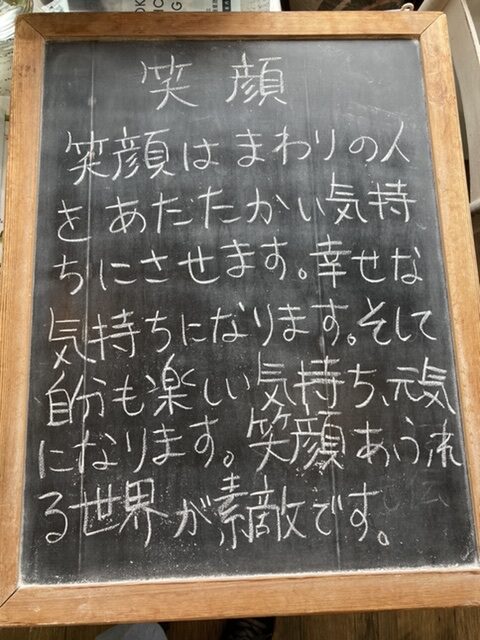 笑顔
笑顔はまわりの人
をあだたかい気持
ちにさせます。幸せな
気持ちになります。そして
自分も楽しい気持ち、元気
になります。笑顔あふれ
る世界が素敵です。